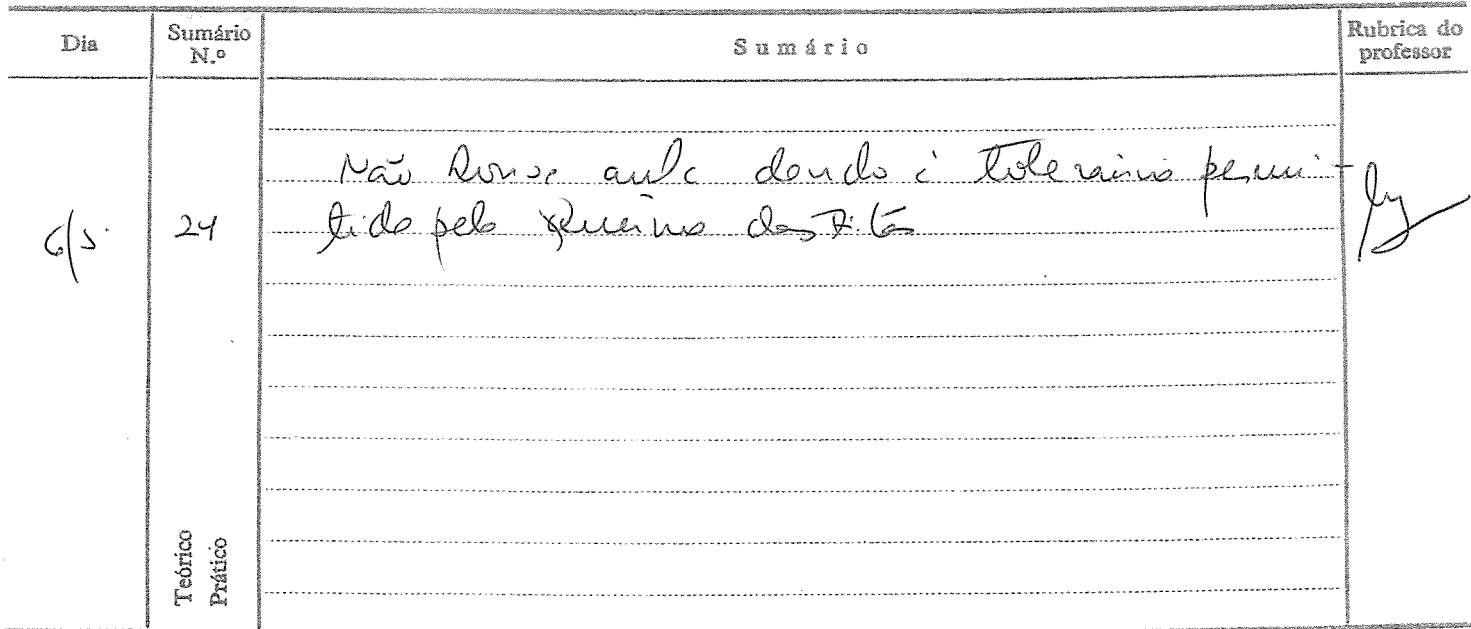 Dia
Sumário N.º
Sumário
Rubrica do professor
6/5.
24
Não houve aula devido à tolerância permi-
tida pela Queima das Fitas
Teórico
Prático